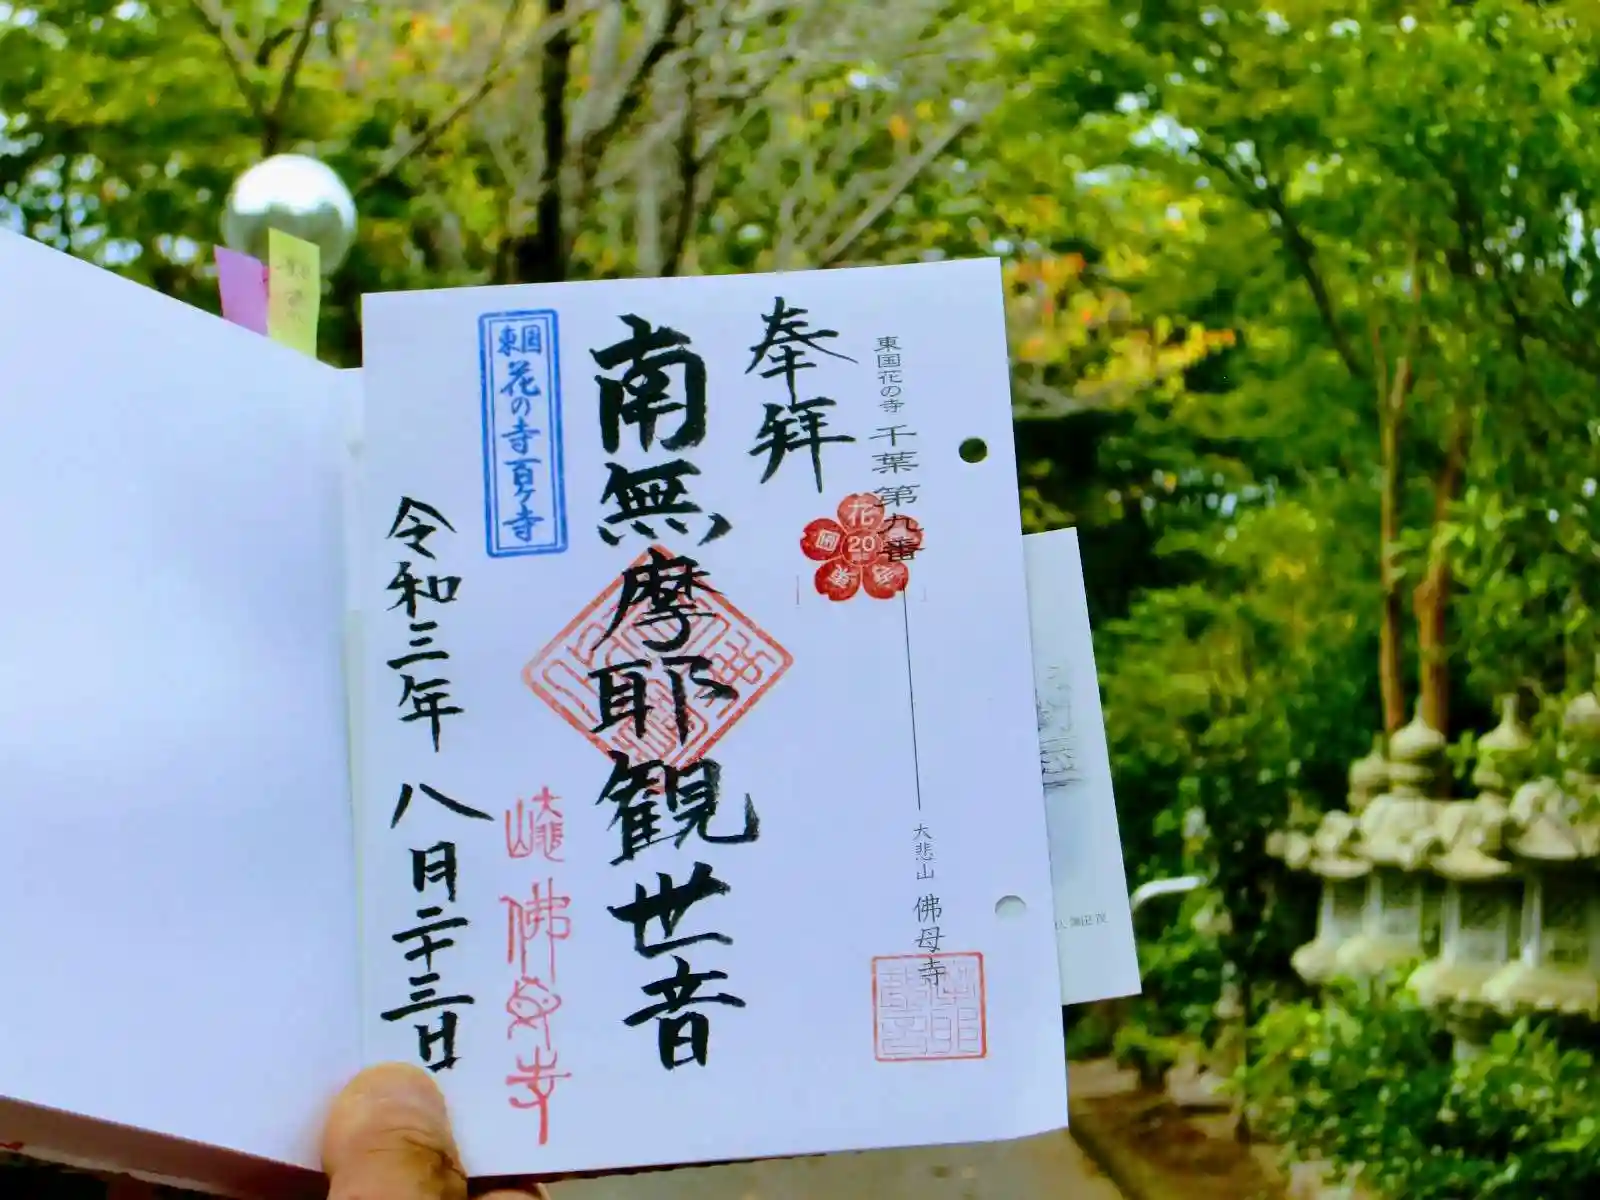 東国花の寺 千葉第九番
大悲山 佛母寺
奉拝
花
20
南無摩耶観世音
東国花の寺百ヶ寺
大悲山
佛母寺
令和三年 八月二十三日